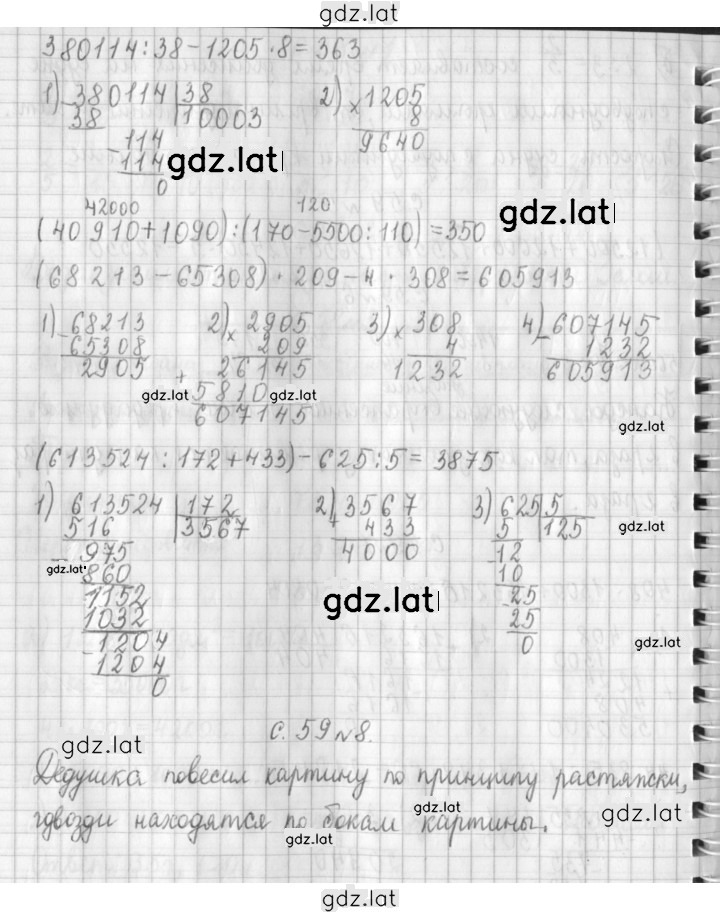 gdz.lat
380114:38-1205·8=363
1) 380114 |38
38 10003
-114
114
0
2) ×1205
8
9640
gdz.lat
gdz.lat
42000 120
(40910+1090):(170-5500:110)=350
(68213-65308)·209-4·308=605913
1) -68213
65308
2905
2) ×2905
209
+26145
5810
607145
3) ×308
4
1232
4) -607145
1232
605913
gdz.lat gdz.lat
gdz.lat
(613524:172+433)-625:5=3875
1) 613524 |172
516 3567
-975
860
1152
1032
-1204
1204
0
2) +3567
433
4000
3) 625|5
5 125
-12
10
-25
25
0
gdz.lat
gdz.lat
gdz.lat
gdz.lat
с. 59 №8.
gdz.lat
Дедушка повесил картину по принципу растяжки,
гдвозди находятся по бокам картины.
gdz.lat
gdz.lat
gdz.lat
gdz.lat